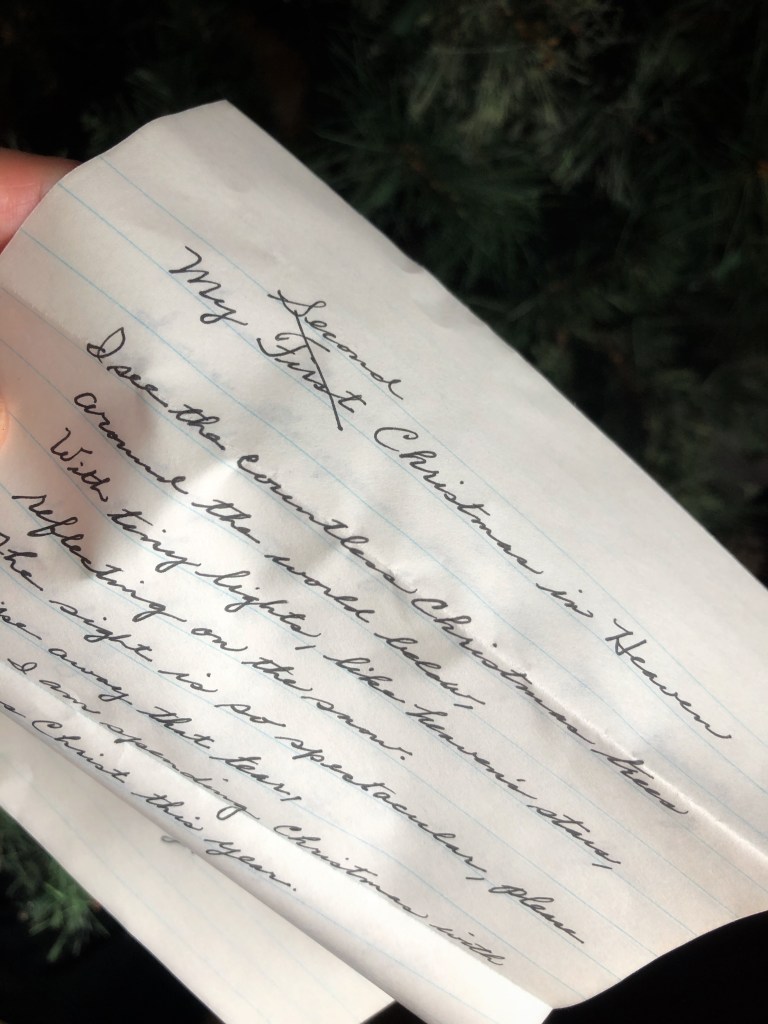 Second
My First Christmas in Heaven
I see the countless Christmas trees
around the world below,
With tiny lights, like heaven's stars,
reflecting on the snow.
The sight is so spectacular, please
away that tear,
I am spending Christmas with
Christ this year.